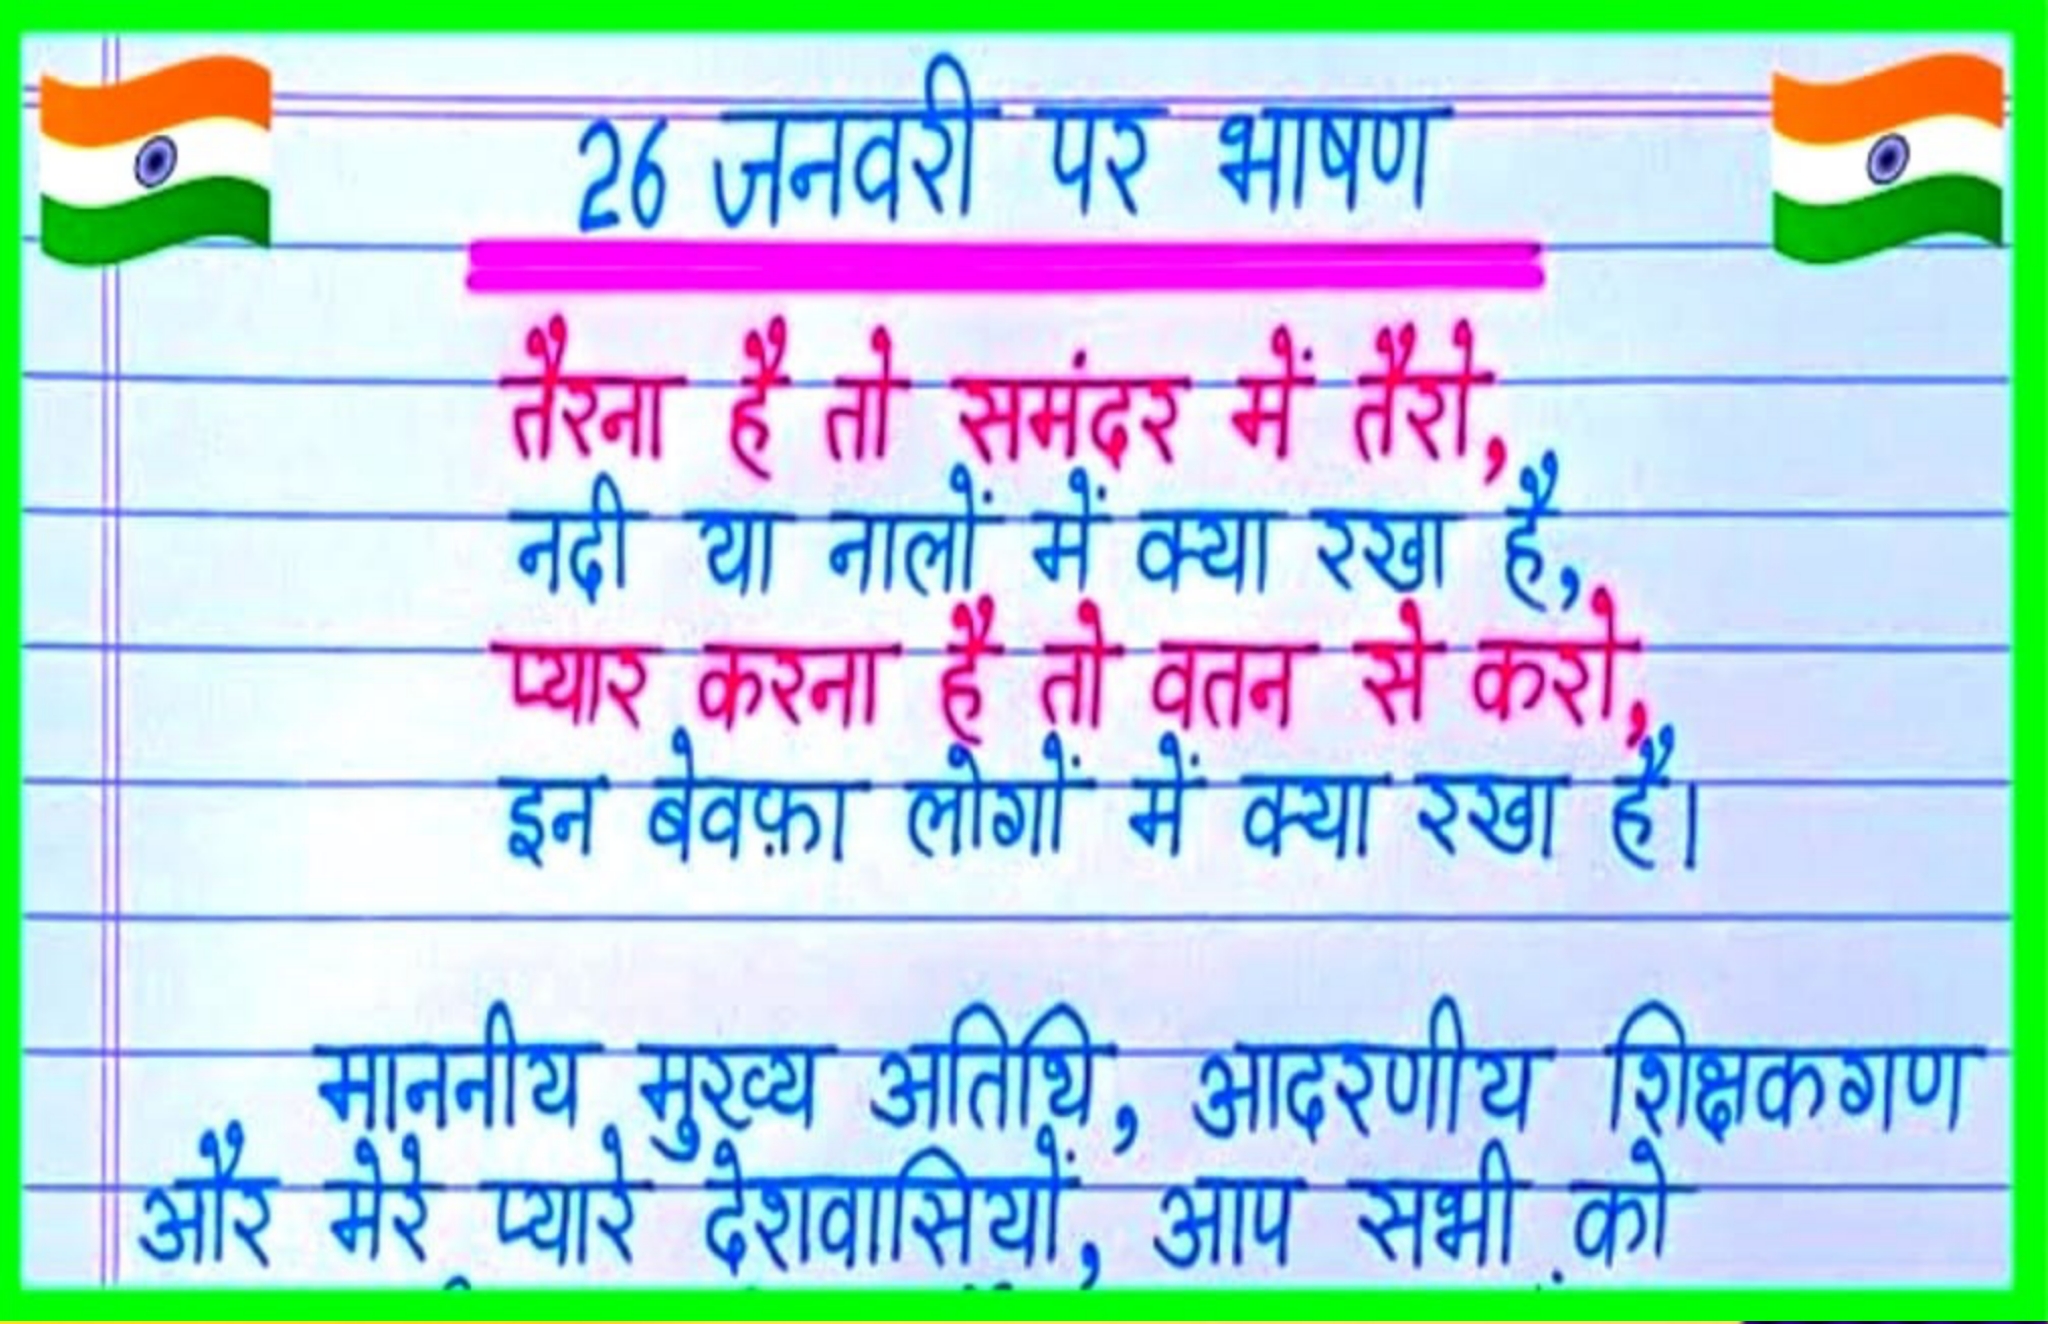 26 जनवरी पर भाषण
तैरना है तो समंदर में तैरो,
नदी या नालों में क्या रखा है,
प्यार करना है तो वतन से करो,
इन बेवफ़ा लोगों में क्या रखा है।
माननीय मुख्य अतिथि, आदरणीय शिक्षकगण
और मेरे प्यारे देशवासियों, आप सभी को